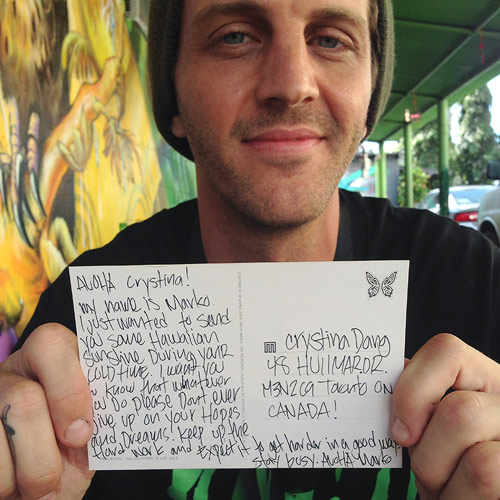 AloHA Crystina!
my name is Marko.
I just wanted to send
you some Hawaiian
Sunshine During your
COLD TIME. I want you
to know that whatever
you Do please Dont ever
give up on your Hopes
and Dreams! Keep up the
Hard work and Expect it to get harder in a good way.
stay busy. AloHA Marko
Crystina Dang
48 HULLMAR DR.
M3N2C9 Toronto ON
CANADA!